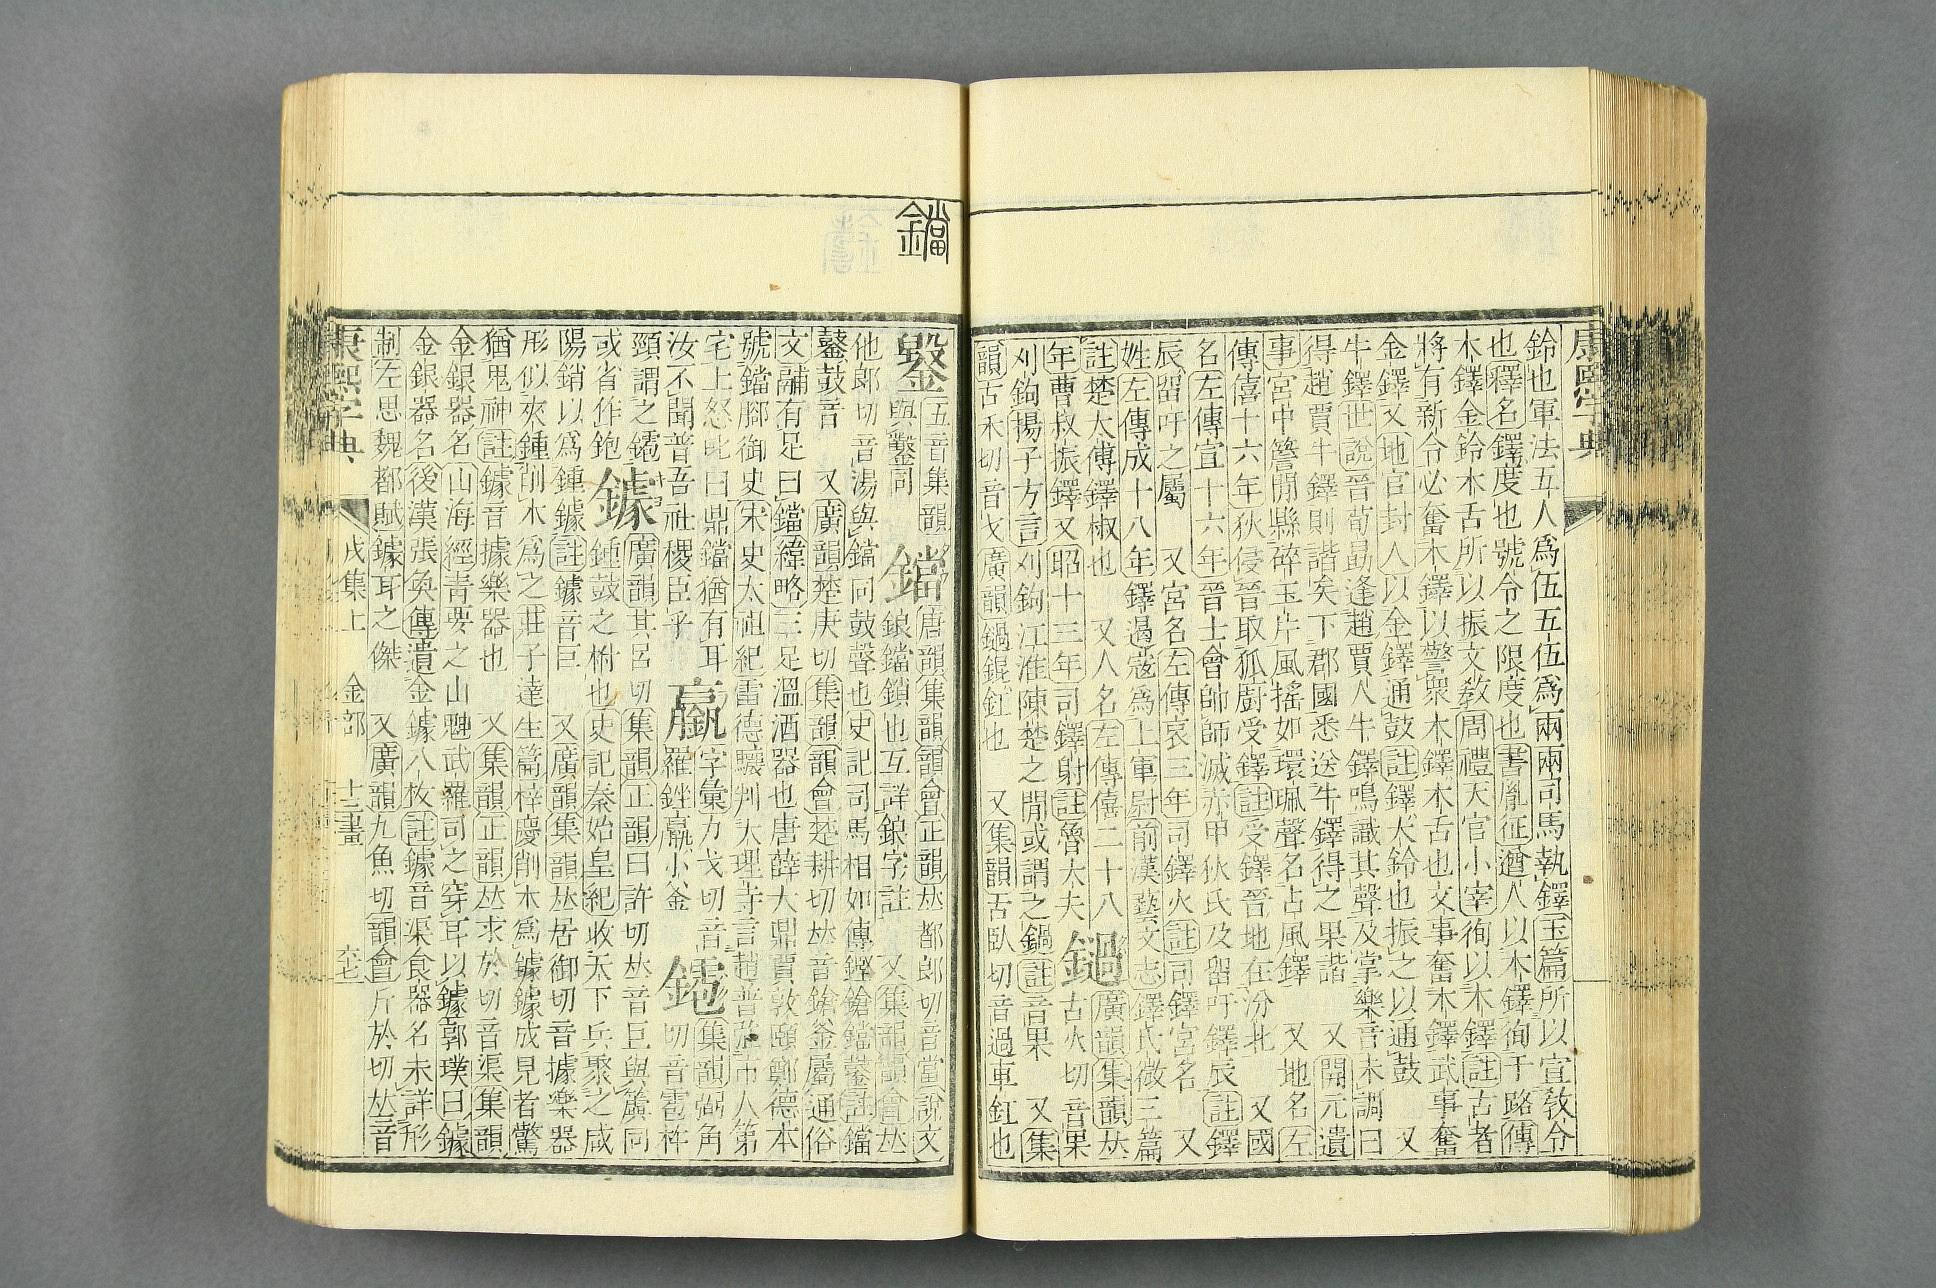 康熙字典
鈴也軍法五人爲伍五伍爲兩兩司馬執鐸玉篇所以宣敎令
也釋名鐸度也號令之限度也書胤征遒人以木鐸徇于路傳
木鐸金鈴木舌所以振文敎周禮天官小宰徇以木鐸註古者
將有新令必奮木鐸以警衆木鐸木舌也文事奮木鐸武事奮
金鐸又地官封人以金鐸通鼓註鐸大鈴也振之以通鼓 又
牛鐸世說晉荀勗逢趙賈人牛鐸鳴識其聲及掌樂音未調曰
得趙賈牛鐸則諧矣下郡國悉送牛鐸得之果諧 又開元遺
事宮中簷閒縣碎玉片風搖如環珮聲名占風鐸 又地名左
傳僖十六年狄侵晉取狐廚受鐸註受鐸晉地在汾北 又國
名左傳宣十六年晉士會帥師滅赤甲狄氏及留吁鐸辰註鐸
辰留吁之屬 又宮名左傳哀三年司鐸火註司鐸宮名 又
姓左傳成十八年鐸遏寇爲上軍尉前漢藝文志鐸氏微三篇
註楚大傅鐸椒也 又人名左傳僖二十八 鍋 廣韻集韻𠀤
年曹叔振鐸又昭十三年司鐸射註魯大夫 古火切音果
刈鉤揚子方言刈鉤江淮陳楚之閒或謂之鍋註音果 又集
韻古禾切音戈廣韻鍋錕釭也 又集韻古臥切音過車釭也
鐺
鑿 五音集韻 鐺 唐韻集韻韻會正韻𠀤都郎切音當說文
與鑿同 鋃鐺鎖也互詳鋃字註 又集韻韻會𠀤
他郎切音湯與鏜同鼓聲也史記司馬相如傳鏗鎗鐺鼞註鐺
鼞鼓音 又廣韻楚庚切集韻韻會楚耕切𠀤音鎗釜屬通俗
文鬴有足曰鐺緯略三足溫酒器也唐薛大鼎賈敦頤鄭德本
號鐺腳御史宋史太祖紀雷德驤判大理寺言趙普強市人第
宅上怒叱曰鼎鐺猶有耳 字彙力戈切音 集韻弼角
汝不聞普吾社稷臣乎 羅銼 小釜 切音雹柞
頸謂之 鐻 廣韻其呂切集韻正韻曰許切𠀤音巨與簴同
或省作鉋 鍾鼓之柎也史記秦始皇紀收天下兵聚之咸
陽銷以爲鍾鐻註鐻音巨 又廣韻集韻𠀤居御切音據樂器
形似夾鍾削木爲之莊子達生篇梓慶削木爲鐻鐻成見者驚
猶鬼神註鐻音據樂器也 又集韻正韻𠀤求於切音渠集韻
金銀器名山海經靑要之山䰠武羅司之穿耳以鐻郭璞曰鐻
金銀器名後漢張奐傳遺金鐻八枚註鐻音渠食器名未詳形
制左思魏都賦鐻耳之傑 又廣韻九魚切韻會斤於切𠀤音
康熙字典 戌集上 金部 十三畫